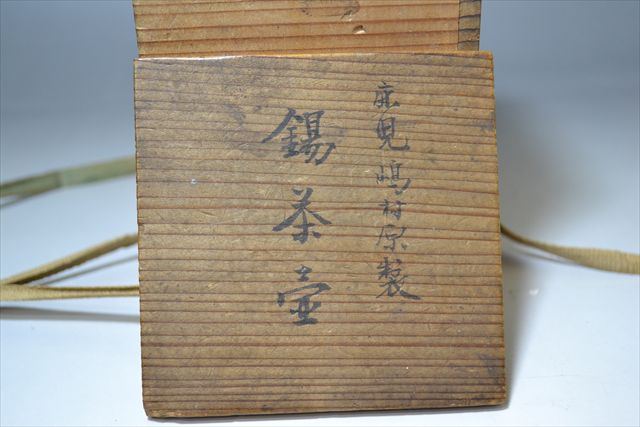 鹿児嶋村原製
錫茶壷